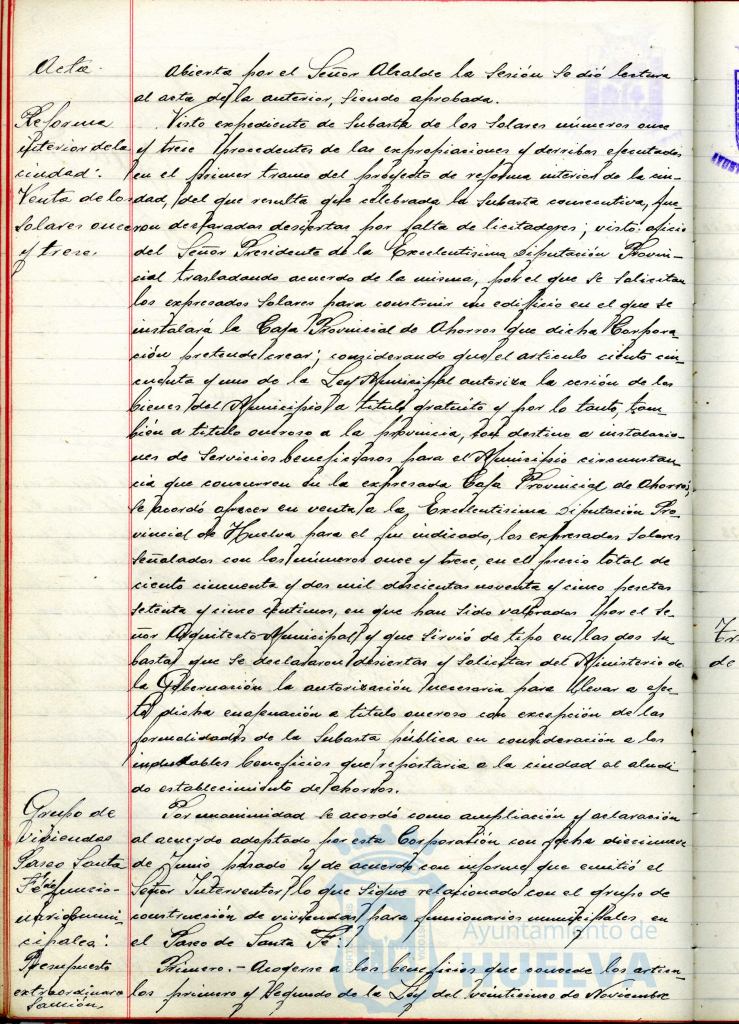 Acta.
Abierta por el Señor Alcalde la Sesión se dió lectura
al acta de la anterior, siendo aprobada.
Reforma
interior de la
ciudad:
Venta de los
solares once
y trece.
Visto expediente de subasta de los solares números once
y trece procedentes de las expropiaciones y derribos ejecutados
en el primer tramo del proyecto de reforma interior de la ciu-
dad, del que resulta que celebrada la subasta consecutiva, fue
ron declaradas desiertas por falta de licitadores; visto oficio
del Señor Presidente de la Excelentísima Diputación Provin-
cial trasladando acuerdo de la misma, por el que se solicitan
los expresados solares para construir un edificio en el que se
instalará la Caja Provincial de Ahorros que dicha Corpora-
ción pretende crear; considerando que el artículo ciento cin-
cuenta y uno de la Ley Municipal autoriza la cesión de los
bienes del Municipio a título gratuito y por lo tanto, tam-
bién a título oneroso a la provincia, con destino a instalacio-
nes de servicios beneficiosos para el Municipio circunstan-
cia que concurren en la expresada Caja Provincial de Ahorros,
se acordó ofrecer en venta a la Excelentísima Diputación Pro-
vincial de Huelva para el fin indicado, los expresados solares
señalados con los números once y trece, en el precio total de
ciento cincuenta y dos mil doscientas noventa y cinco pesetas
setenta y cinco céntimos, en que han sido valorados por el Se-
ñor Arquitecto Municipal y que sirvió de tipo en las dos su-
bastas que se declararon desiertas y solicitar del Ministerio de
la Gobernación la autorización necesaria para llevar a efec-
to dicha enajenación a título oneroso con excepción de las
formalidades de la subasta pública en consideración a los
indudables beneficios que reportaria a la ciudad el aludi
do establecimiento de ahorros.
Grupo de
Viviendas
Paseo Santa
Fé de funcio-
narios muni-
cipales:
Presupuesto
extraordinario
Sanción
Por unanimidad se acordó como ampliación y aclaración
al acuerdo adoptado por esta Corporación con fecha diecinueve
de Junio pasado y de acuerdo con informe que emitió el
Señor Interventor lo que sigue relacionado con el grupo de
construcción de viviendas para funcionarios municipales, en
el Paseo de Santa Fé:
Primero.- Acogerse a los beneficios que concede los artícu-
los primero y segundo de la Ley del veinticinco de Noviembre
Ayuntamiento de
HUELVA